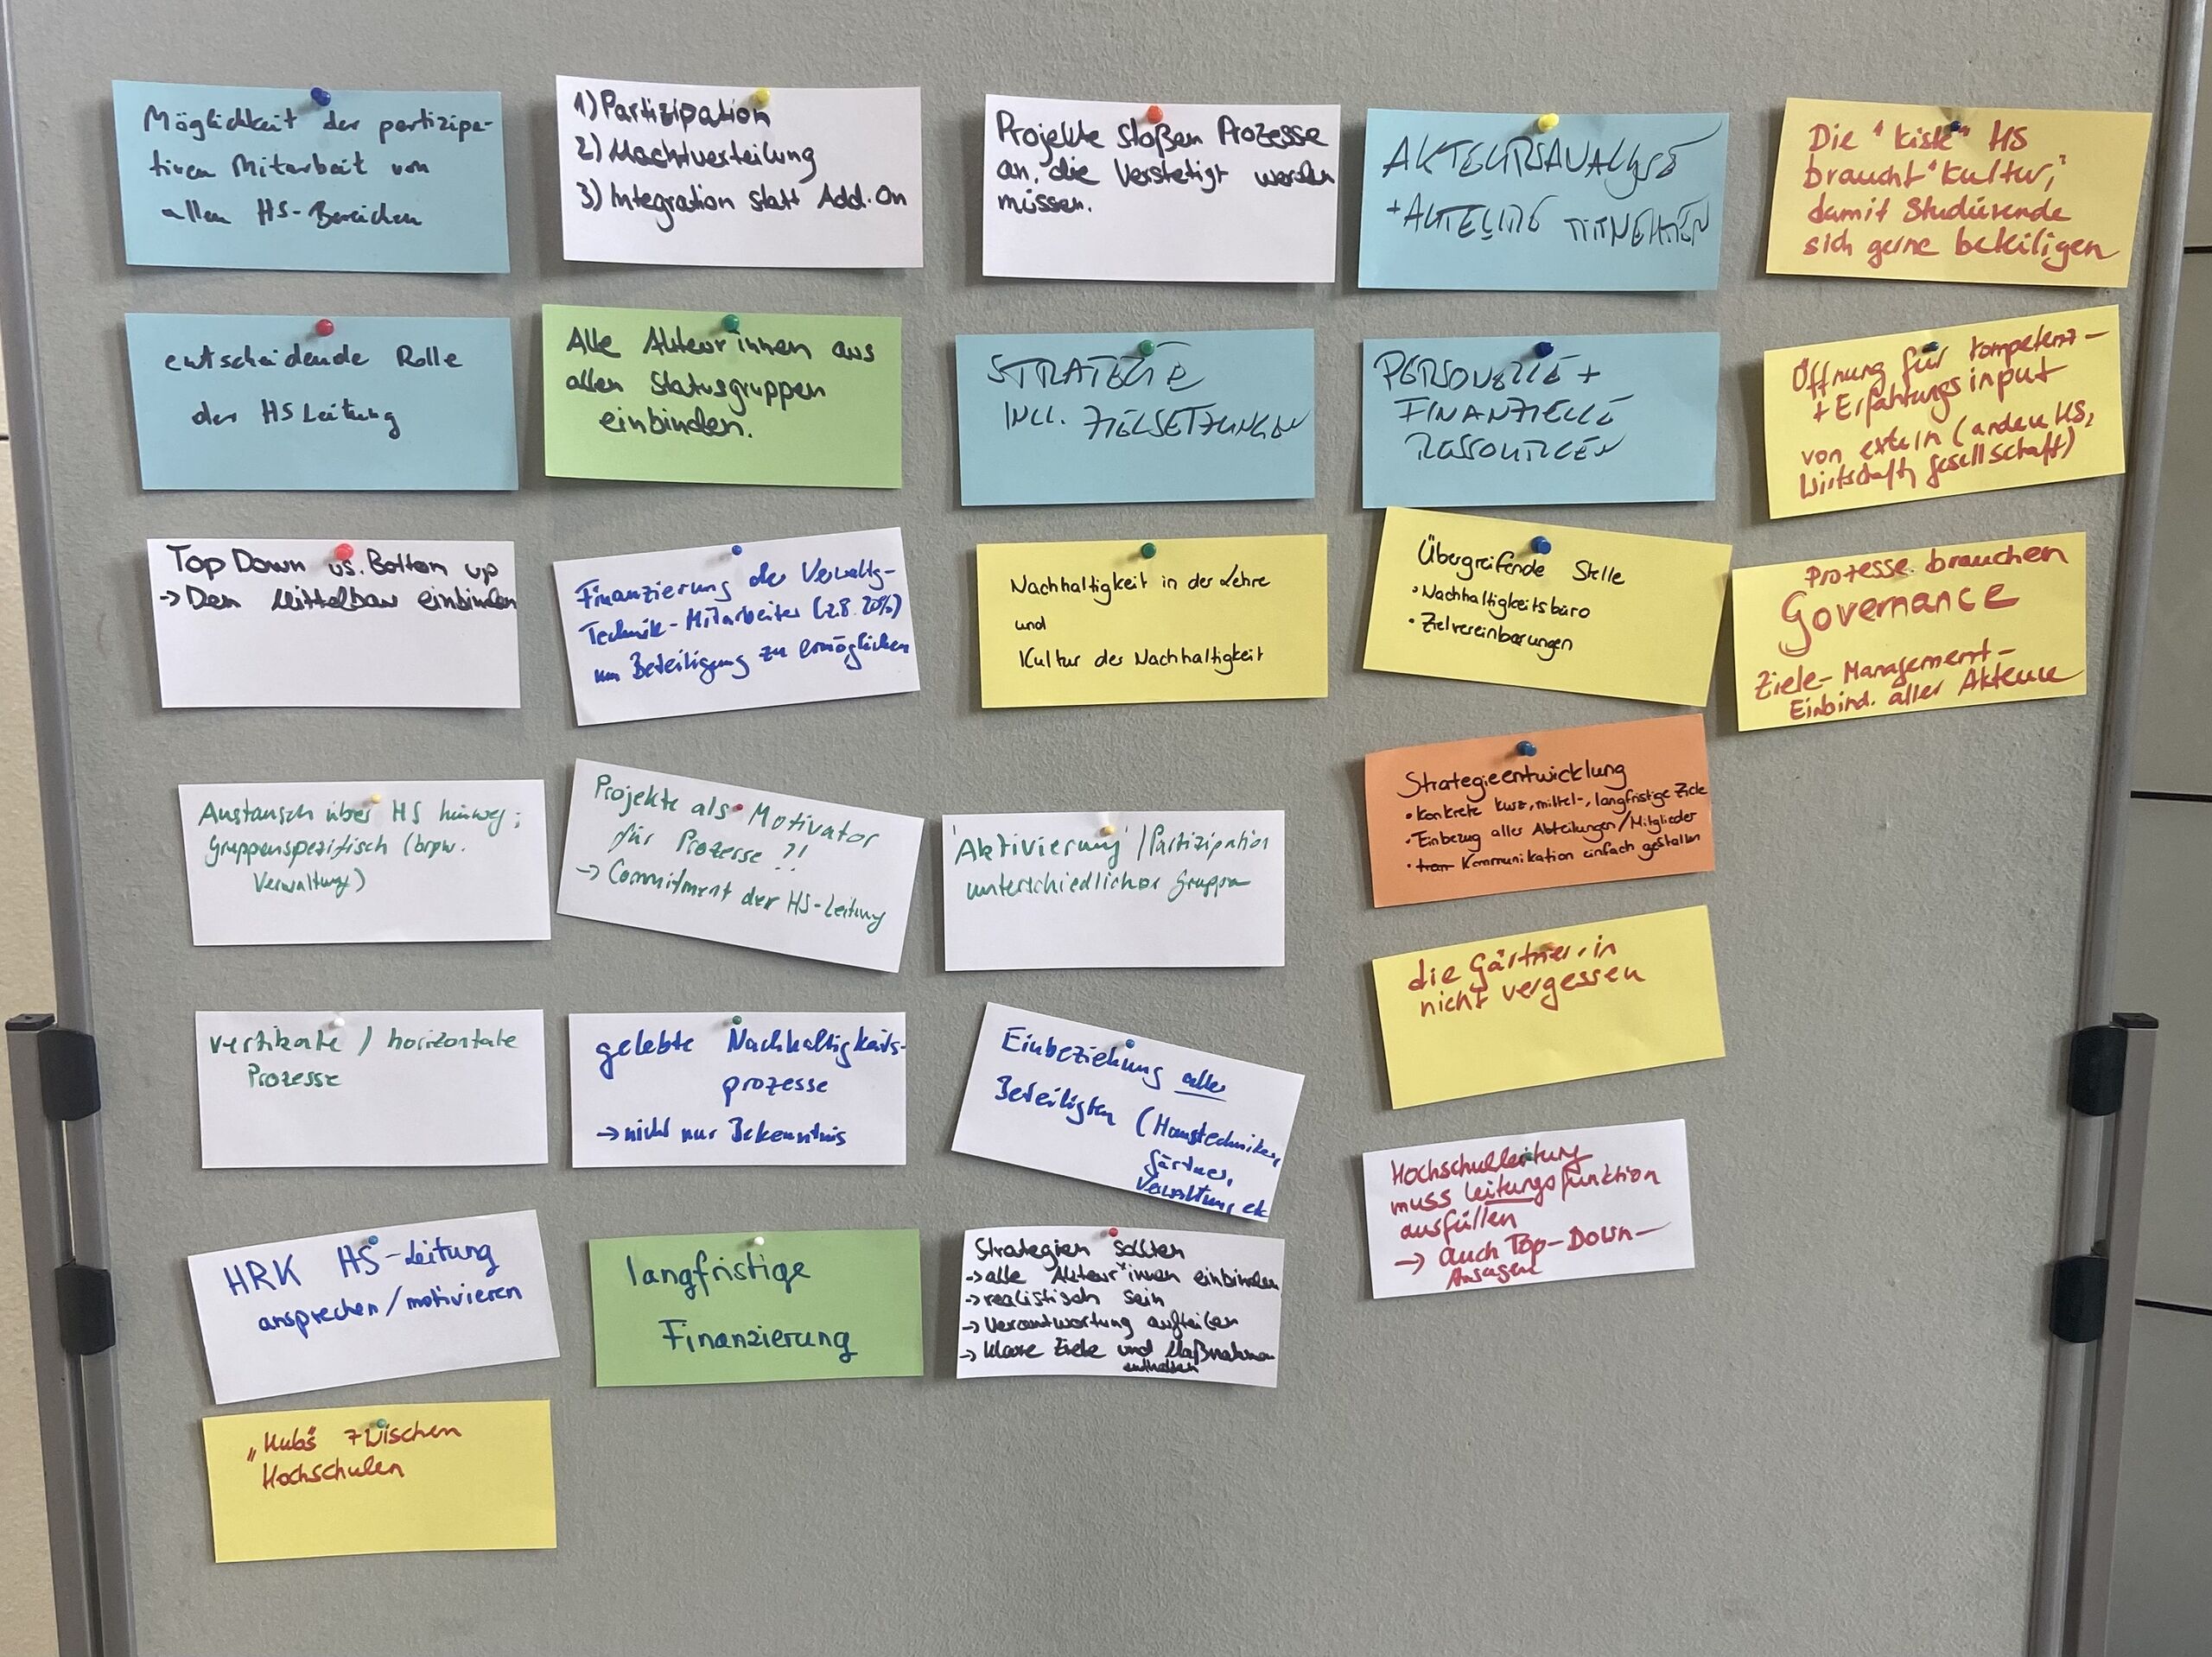 Möglichkeit der partizipa-
tiven Mitarbeit von
allen HS-Bereichen
entscheidende Rolle
der HS Leitung
Top Down vs. Bottom up
-> Den Mittelbau einbinden
Austausch über HS hinweg;
gruppenspezifisch (bspw.
Verwaltung)
vertikale / horizontale
Prozesse
HRK HS-Leitung
ansprechen / motivieren
„Hubs" zwischen
Hochschulen
1) Partizipation
2) Machtverteilung
3) Integration statt Add-On
Alle Akteur*innen aus
allen Statusgruppen
einbinden.
Finanzierung der Verwaltg-
Technik-Mitarbeiter (z.B. 20%)
um Beteiligung zu ermöglichen
Projekte als Motivator
für Prozesse ?!
-> Commitment der HS-Leitung
gelebte Nachhaltigkeits-
prozesse
-> nicht nur Bekenntnis
langfristige
Finanzierung
Projekte stoßen Prozesse
an, die verstetigt werden
müssen.
STRATEGIE
INCL. ZIELSETZUNGEN
Nachhaltigkeit in der Lehre
und
Kultur der Nachhaltigkeit
'Aktivierung' / Partizipation
unterschiedlicher Gruppen
Einbeziehung aller
Beteiligten (Haustechniker,
Gärtner,
Verwaltung etc
Strategien sollten
-> alle Akteur*innen einbinden
-> realistisch sein
-> Verantwortung aufteilen
-> klare Ziele und Maßnahmen
enthalten
AKTEURSANALYSE
+ AKTEURE MITNEHMEN
PERSONELLE +
FINANZIELLE
RESSOURCEN
Übergreifende Stelle
• Nachhaltigkeitsbüro
• Zielvereinbarungen
Strategieentwicklung
• Konkrete kurz-, mittel-, langfristige Ziele
• Einbezug aller Abteilungen / Mitglieder
• Kommunikation einfach gestalten
die Gärtner.in
nicht vergessen
Hochschulleitung
muss Leitungsfunktion
ausfüllen
-> auch Top-Down-
Ansagen
Die "Kiste" HS
braucht "Kultur",
damit Studierende
sich gerne beteiligen
Öffnung für Kompetenz-
+ Erfahrungsinput
von extern (andere HS,
Wirtschaft, Gesellschaft)
Prozesse brauchen
Governance
Ziele- Management-
Einbind. aller Akteure